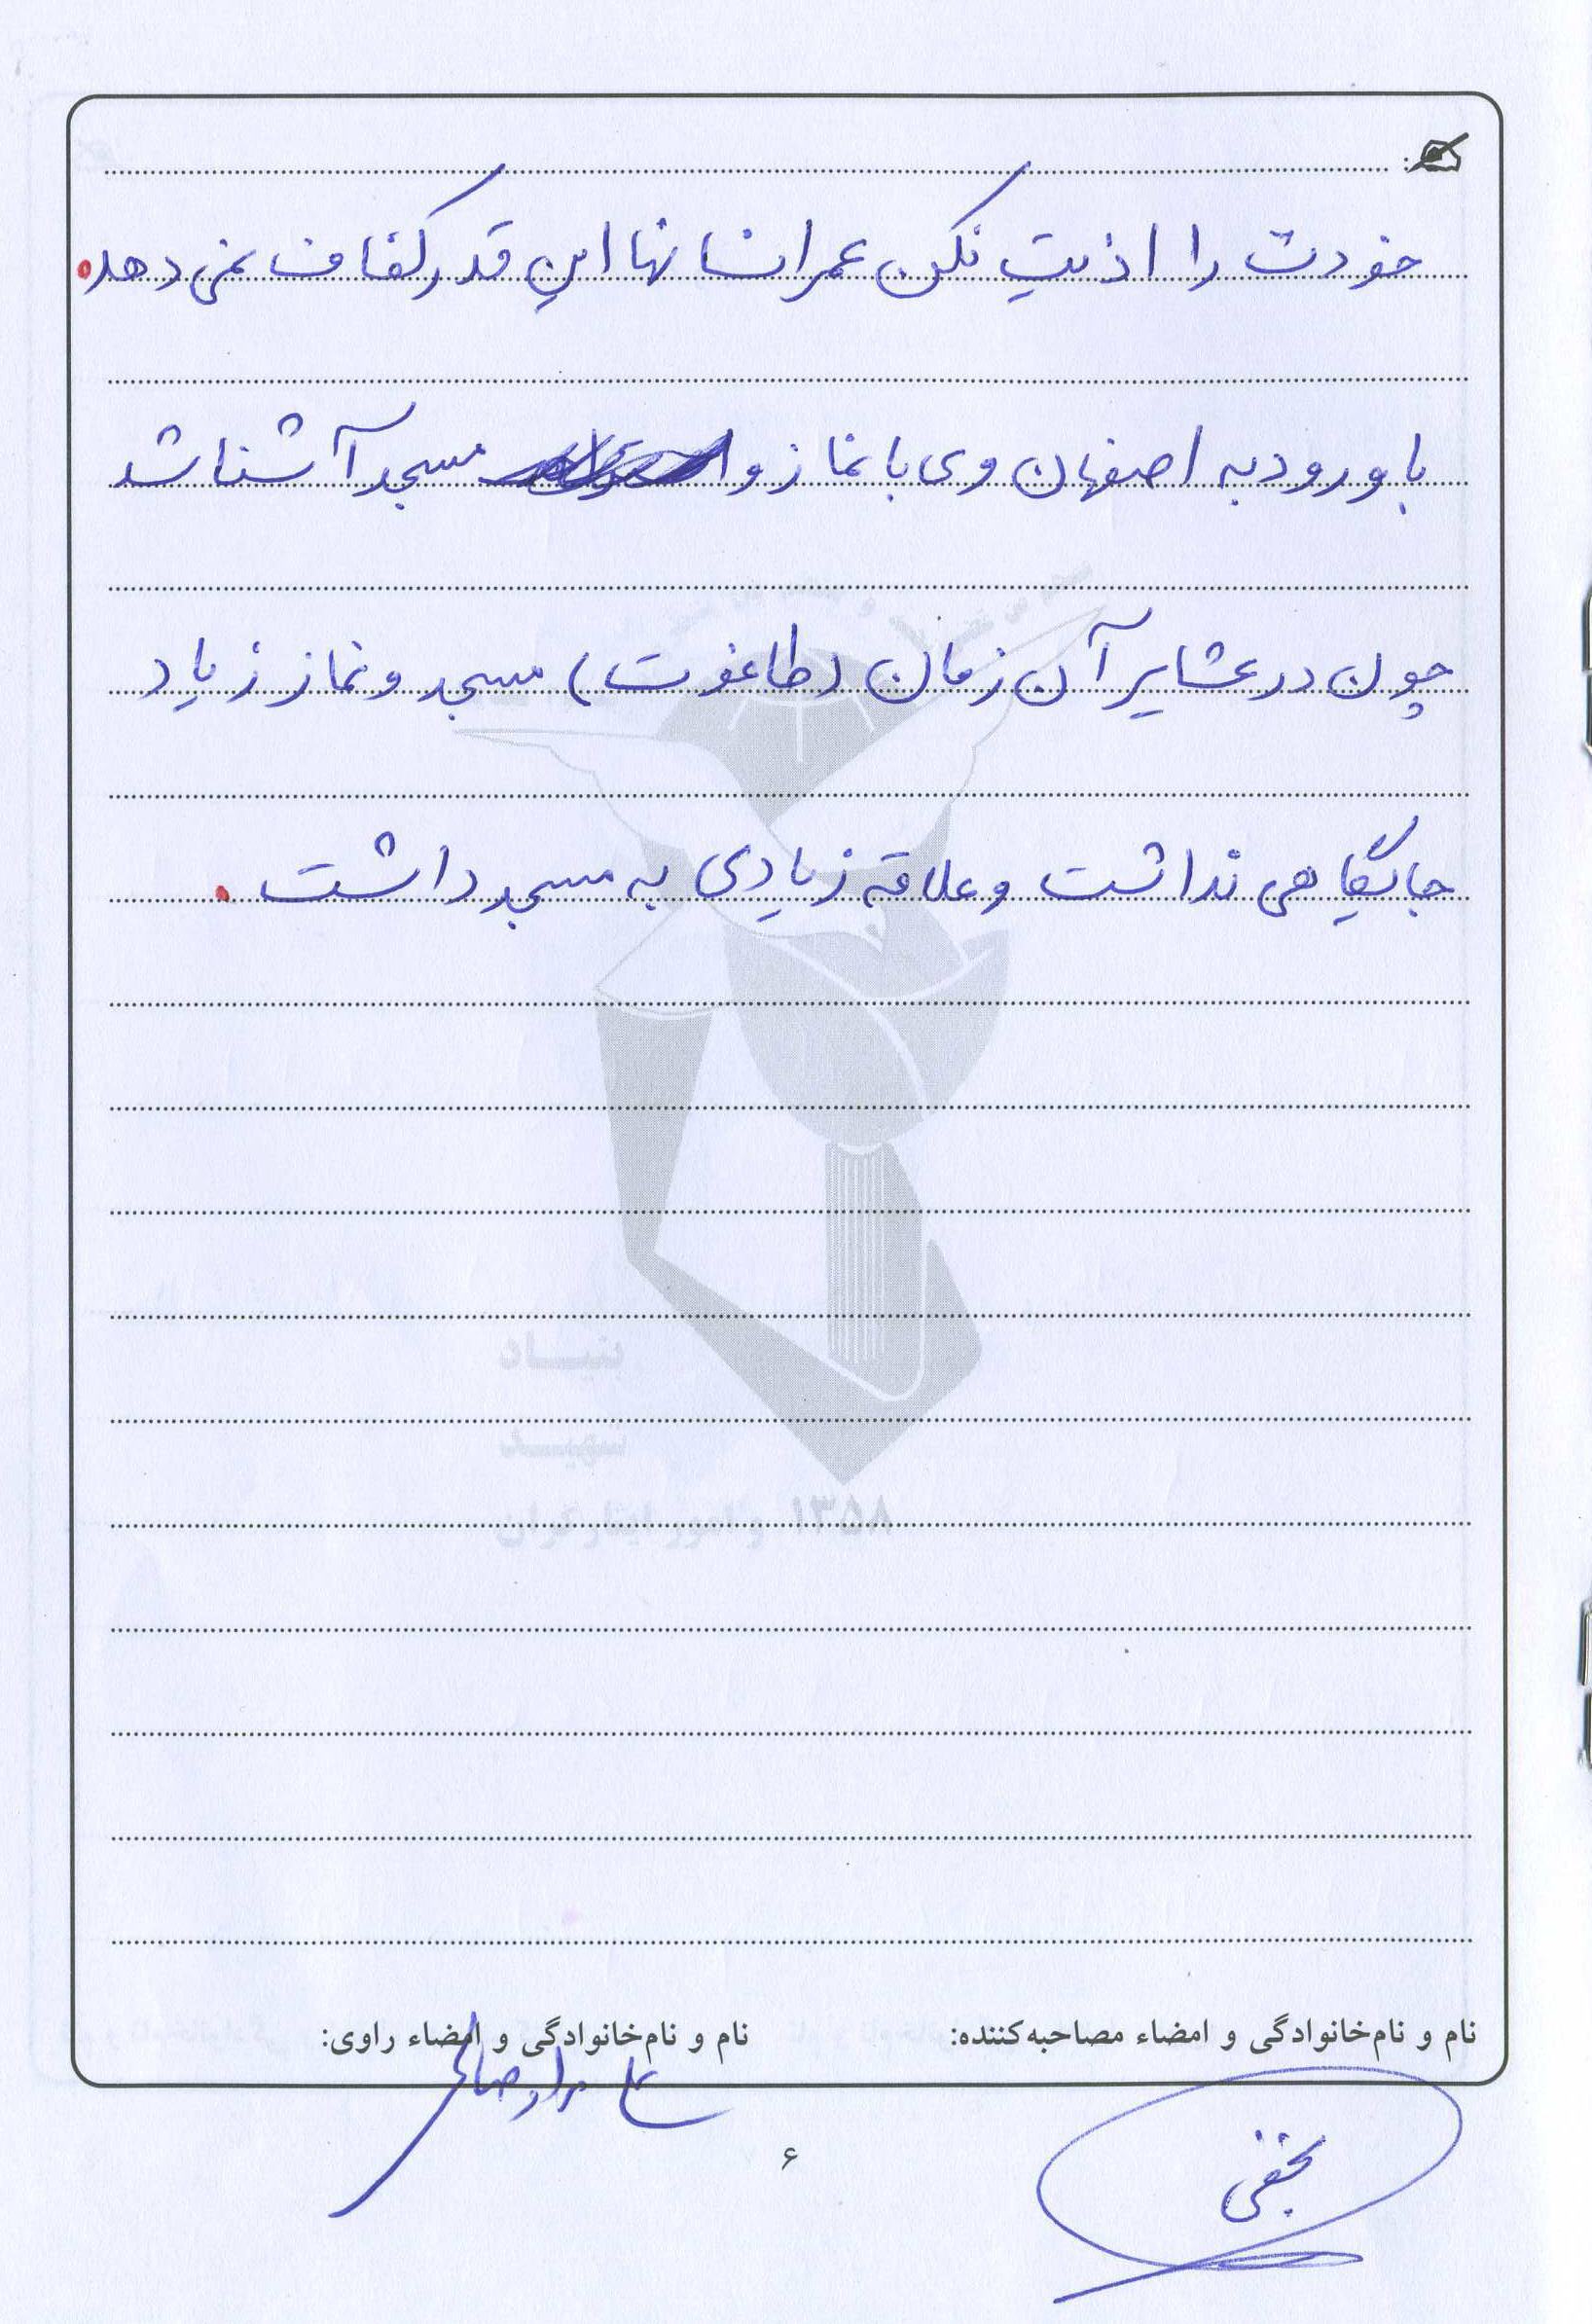 خودت را اذیت نکن عمر انسانها این قدر کفاف نمی دهد.
با ورود به اصفهان وی با نماز و مسجد آشنا شد
چون در عشایر آن زمان (طاغوت) مسجد و نماز زیاد
جایگاهی نداشت و علاقه زیادی به مسجد داشت.
بنیاد
شهید
و امور ایثارگران ۱۳۵۸
نام و نام‌خانوادگی و امضاء مصاحبه‌کننده:
نام و نام‌خانوادگی و امضاء راوی:
نجفی
۶